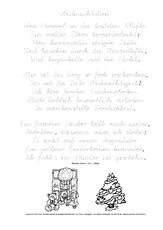 Weihnachtslied
Vom Himmel in die tiefsten Klüfte
Ein milder Stern herniederlacht;
Vom Tannenwalde steigen Düfte
Und hauchen durch die Winterlüfte,
Und kerzenhelle wird die Nacht.
Mir ist das Herz so froh erschrocken,
Das ist die liebe Weihnachtszeit!
Ich höre fernher Kirchenglocken
Mich lieblich heimatlich verlocken
In märchenstille Herrlichkeit.
Ein frommer Zauber hält mich wieder,
Anbetend, staunend muss ich stehn;
Es sinkt auf meine Augenlider
Ein goldner Kindertraum hernieder,
Ich fühl's, ein Wunder ist geschehn.
Theodor Storm